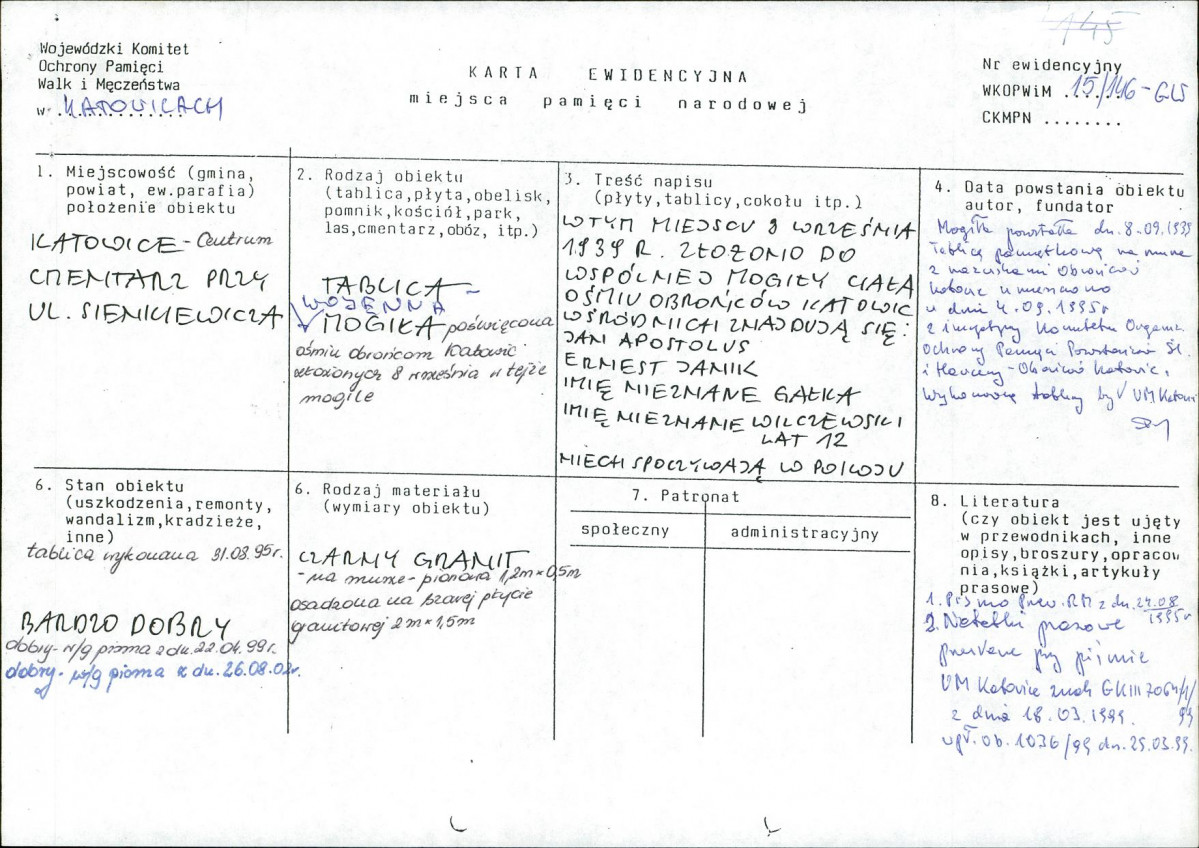 145
Wojewódzki Komitet
Ochrony Pamięci
Walk i Męczeństwa
w KATOWICACH
KARTA EWIDENCYJNA
miejsca pamięci narodowej
Nr ewidencyjny
WKOPWiM 15/146-GW
CKMPN ........
1. Miejscowość (gmina,
powiat, ew.parafia)
położenie obiektu
KATOWICE - Centrum
CMENTARZ PRZY
UL. SIENKIEWICZA
2. Rodzaj obiektu
(tablica,płyta,obelisk,
pomnik,kościół,park,
las,cmentarz,obóz, itp.)
TABLICA -
WOJENNA
MOGIŁA poświęcona
ośmiu obrońcom Katowic
złożonych 8 września w tejże
mogile
3. Treść napisu
(płyty,tablicy,cokołu itp.)
W TYM MIEJSCU 8 WRZEŚNIA
1939 R. ZŁOŻONO DO
WSPÓLNEJ MOGIŁY CIAŁA
OŚMIU OBROŃCÓW KATOWIC
WŚRÓD NICH ZNAJDUJĄ SIĘ:
JAN APOSTOLUS
ERNEST JANIK
IMIĘ NIEZNANE GAŁKA
IMIĘ NIEZNANE WILCZEWSKI
LAT 12
NIECH SPOCZYWAJĄ W POKOJU
4. Data powstania obiektu
autor, fundator
Mogiła powstała dn. 8.09.1939
Tablicę pamiątkową na murze
z nazwiskami Obrońców
Katowic umieszczono
w dniu 4.09.1995r
z inicjatywy Komitetu Organiz.
Ochrony Pamięci Powstańców Śl.
i Harcerzy - Obrońców Katowic,
Wykonawcą tablicy był UM Katowice
6. Stan obiektu
(uszkodzenia,remonty,
wandalizm,kradzieże,
inne)
tablica wykonana 31.08.95r.
BARDZO DOBRY
dobry - w/g pisma z dn. 22.04.99r.
dobry - w/g pisma z dn. 26.08.02r.
6. Rodzaj materiału
(wymiary obiektu)
CZARNY GRANIT
- na murze - pionowa 1,2m x 0,5m
osadzona na szarej płycie
granitowej 2m x 1,5m
7. Patronat
społeczny
administracyjny
8. Literatura
(czy obiekt jest ujęty
w przewodnikach, inne
opisy,broszury,opracow
nia,książki,artykuły
prasowe)
1. Pismo Przew. RM z dn. 24.08
1995r
2. Notatki prasowe
przesłane przy piśmie
UM Katowice znak GKIII 7064/1/
99
z dnia 18.03.1999.
wpł. ob. 1036/99 dn. 25.03.99.